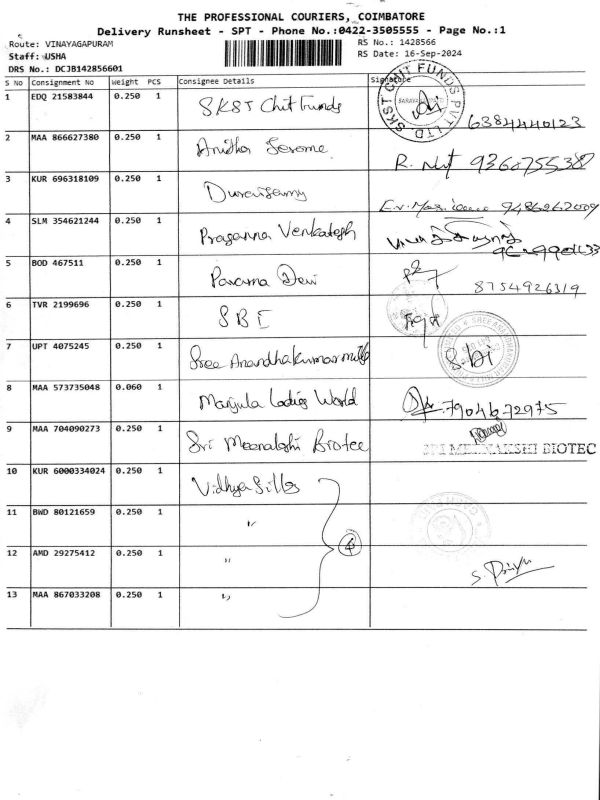 THE PROFESSIONAL COURIERS, COIMBATORE
Delivery Runsheet - SPT - Phone No.:0422-3505555 - Page No.:1
Route: VINAYAGAPURAM RS No.: 1428566
Staff: USHA RS Date: 16-Sep-2024
DRS No.: DCJB142856601
S No Consignment No Weight PCS Consignee Details Signature
1 EDQ 21583844 0.250 1 SKST Chit Funds SKST CHIT FUNDS PVT LTD 6384440123
2 MAA 866627380 0.250 1 Anitha Jerome R. 9360755387
3 KUR 696318109 0.250 1 Duraisamy 9486262009
4 SLM 354621244 0.250 1 Prasanna Venkatesh
5 BOD 467511 0.250 1 Devi 8754926319
6 TVR 2199696 0.250 1 SBI
7 UPT 4075245 0.250 1 Sree Anandhakumar mills
8 MAA 573735048 0.060 1 Manjula Ladies World 7904672975
9 MAA 704090273 0.250 1 Sri Meenakshi Biotec SRI MEENAKSHI BIOTEC
10 KUR 6000334024 0.250 1 Vidhya Silks
11 BWD 80121659 0.250 1 "
12 AMD 29275412 0.250 1 " 4
13 MAA 867033208 0.250 1 "